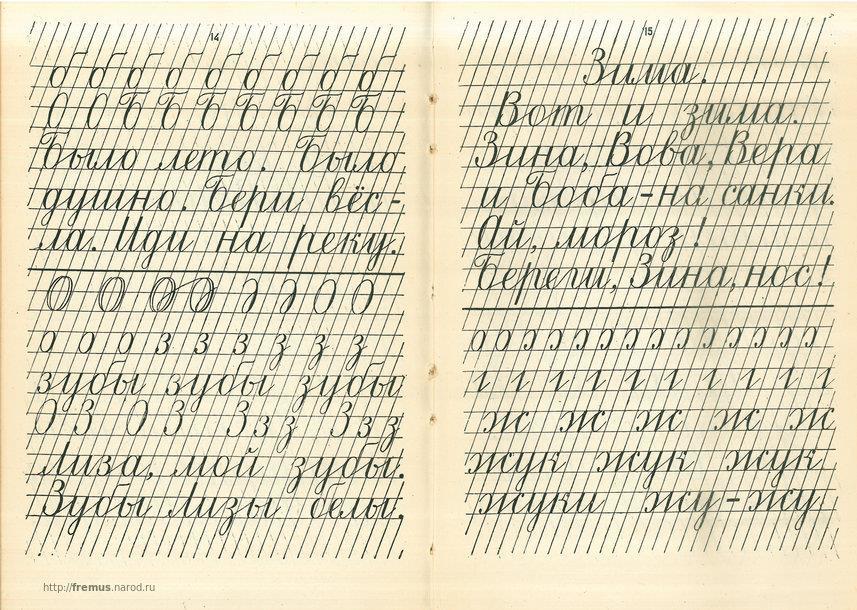 14
б б б б б б б б б
О О Б Б Б Б Б Б Б
Было лето. Было
душно. Бери вёс-
ла. Иди на реку.
о о о з з з з з з
зубы зубы зубы
О З О З З з з З з з
Лиза, мой зубы.
Зубы Лизы белы.
15
Зима.
Вот и зима.
Зина, Вова, Вера
и Боба-на санки.
Ай, мороз!
Береги, Зина, нос!
ж ж ж ж ж
жук жук жук
жуки жу-жу
http://fremus.narod.ru